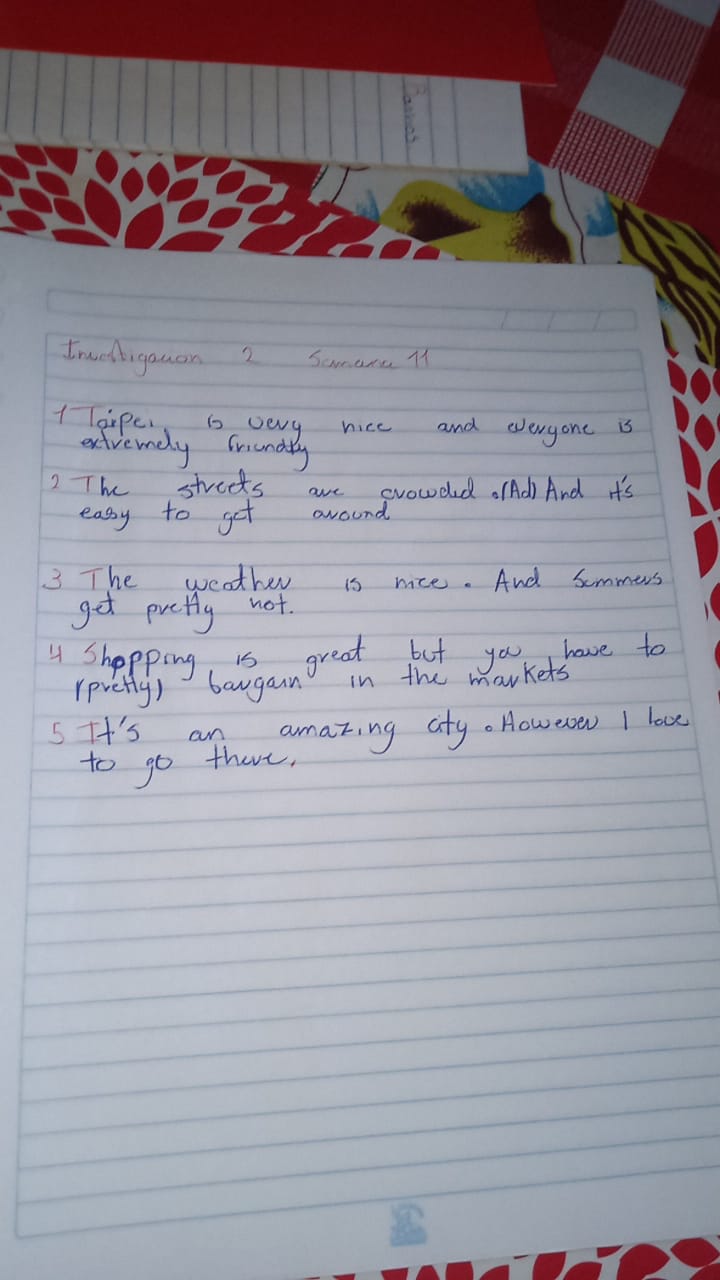 Investigacion 2 Semana 11
1 Taipei is very nice and everyone is
extremely friendly
2 The streets are crowded .(Ad) And it's
easy to get around
3 The weather is nice. And Summers
get pretty hot.
4 Shopping is great but you have to
(pretty) bargain in the markets
5 It's an amazing city. However I love
to go there.